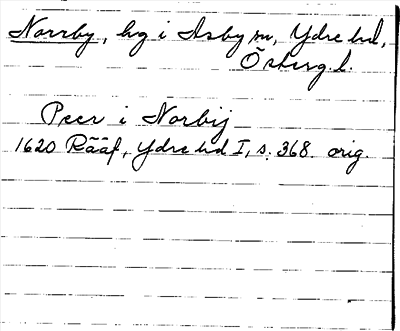 Norrby, hg i Asby sn, Ydre hd,
Österg. l.
Peer i Norbij
1620 Rääf, Ydre hd I, s. 368. orig.